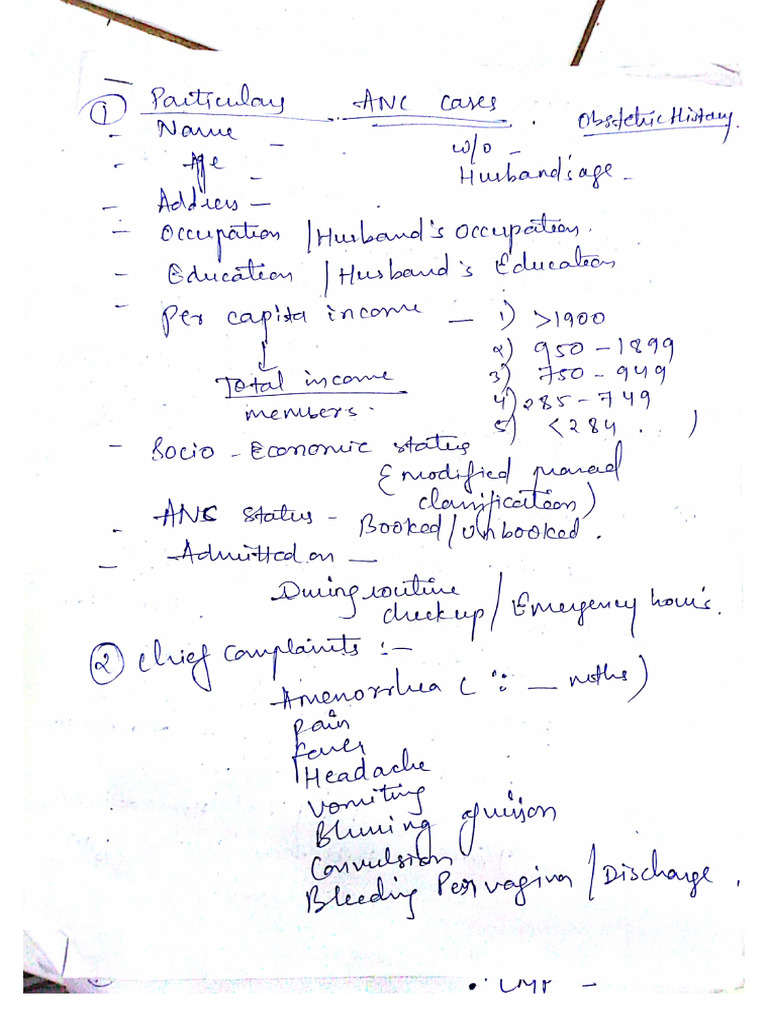 ① Particulars ANC cases . Obstetric History.
- Name - w/o -
- Age - Husband's age -
- Address -
- Occupation / Husband's occupation.
- Education / Husband's Education
- Per capita income - 1) >1900
2) 950-1899
↓ 3) 750-949
Total income 4) 285-749
members. 5) <284 . . )
- Socio-Economic status
{ modified prasad
classification)
- ANC status - Booked/unbooked.
- Admitted on -
During routine
checkup / Emergency hours.
② Chief complaints :-
Amenorrhea ( ∵ __ mths)
Pain
Fever
Headache
Vomiting
Bluring of vision
Convulsion
Bleeding Per vagina / Discharge.
• LMP -